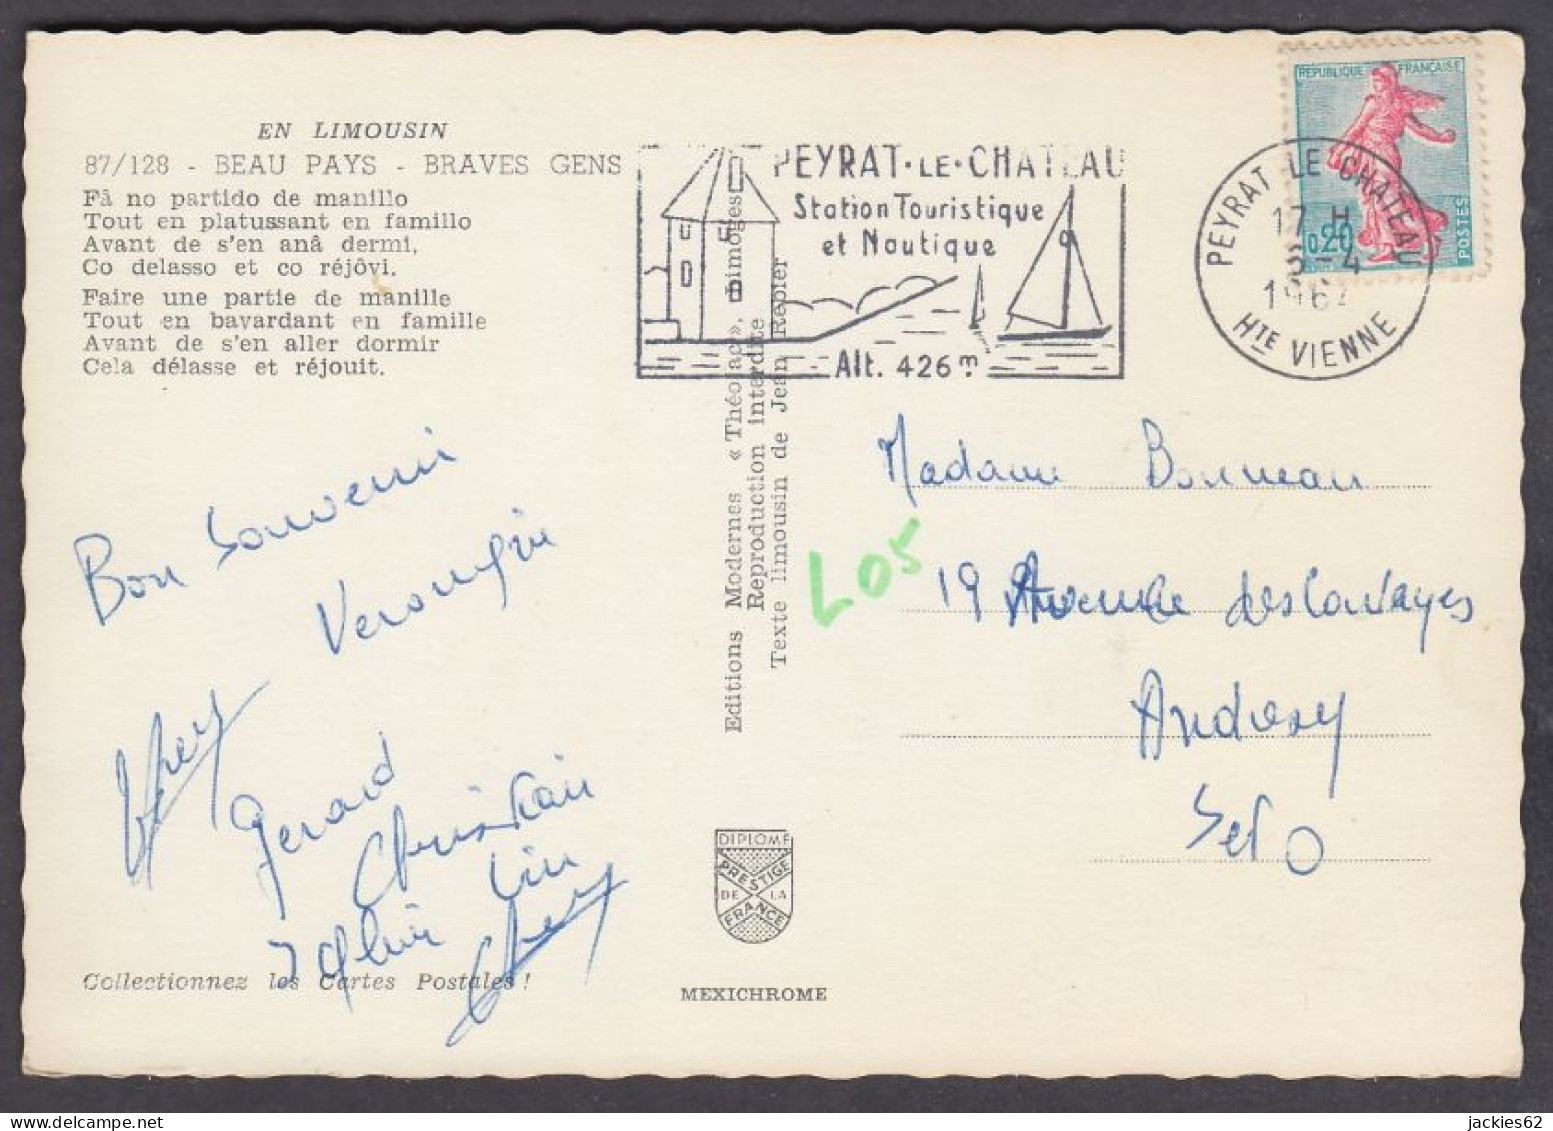 EN LIMOUSIN
87/128 - BEAU PAYS - BRAVES GENS
Fâ no partido de manillo
Tout en platussant en famillo
Avant de s'en anâ dermi,
Co delasso et co réjôvi.
Faire une partie de manille
Tout en bavardant en famille
Avant de s'en aller dormir
Cela délasse et réjouit.
Bon Souvenir
Gerard
Christian
Collectionnez les Cartes Postales !
Editions Modernes « Théojac », Limoges
Reproduction interdite
Texte limousin de Jean Rebier
DIPLOME
PRESTIGE
DE LA
FRANCE
MEXICHROME
PEYRAT-LE-CHATEAU
Station Touristique
et Nautique
Alt. 426 m.
REPUBLIQUE FRANÇAISE
0,20
POSTES
PEYRAT LE CHATEAU
17 H
6-4
196
HTE VIENNE
Madame Bonneau
L05
19 Avenue des Courayes
Andresy
S et O
jackies62